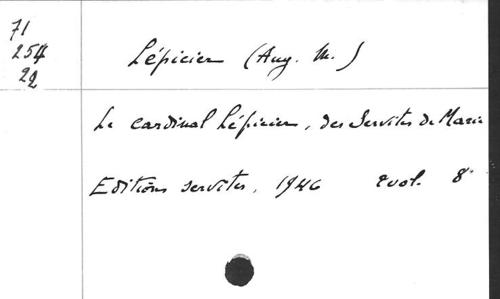 71
254
22
Lépicier (Aug. M.)
Le cardinal Lépicier, des Servites de Marie
Editions servites, 1946 2 vol. 8°